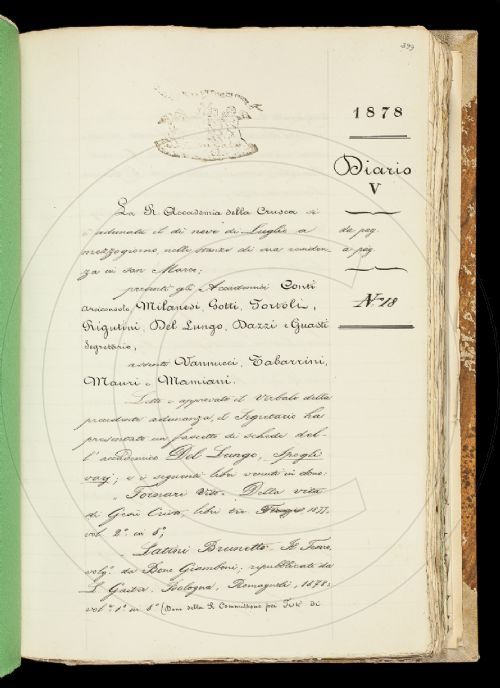 399
1878
Diario
V
da pag.
a pag.
N.º 18
La R. Accademia della Crusca si
è adunata il dì nove di Luglio a
mezzogiorno, nelle stanze di sua residen-
za in San Marco;
presenti gli Accademici Conti
Arciconsolo, Milanesi, Gotti, Tortoli,
Rigutini, Del Lungo, Dazzi e Guasti
Segretario,
assenti Vannucci, Tabarrini,
Mauri e Mamiani.
Letto e approvato il Verbale della
precedente adunanza, il Segretario ha
presentato un fascetto di schede del-
l'accademico Del Lungo, Spogli
varj; e i seguenti libri venuti in dono:
" Fornari Vito. Della vita
di Gesù Cristo, libri tre. Firenze 1877.
vol. 2.º in 8.º;
" Latini Brunetto. Il Tesoro,
volg.º da Bono Giamboni; ripubblicato da
L. Gaiter. Bologna, Romagnoli, 1878.
vol.º 1.º in 8.º (Dono della R. Commissione pei Testi di